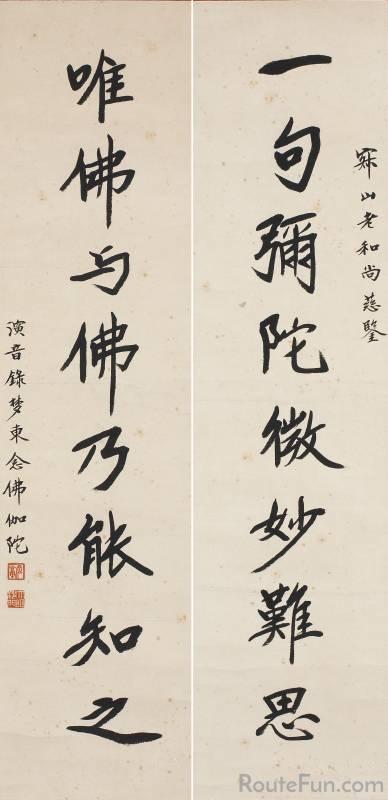 寂山老和尚慈鑒
一句彌陀微妙難思
唯佛与佛乃能知之
演音錄梦東念佛伽陀
RouteFun.com